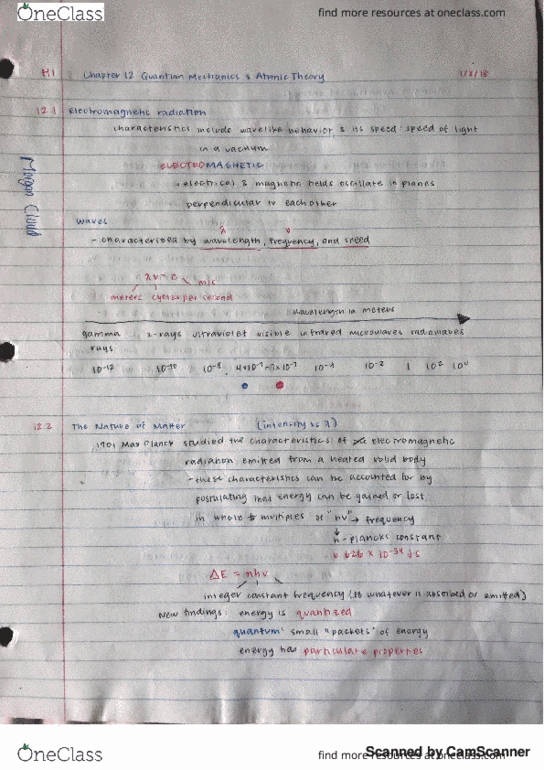 OneClass find more resources at oneclass.com
H1 Chapter 12 Quantum Mechanics & Atomic Theory 1/8/18
12.1 Electromagnetic radiation
characteristics include wavelike behavior & its speed: speed of light
in a vacuum
ELECTROMAGNETIC
electrical & magnetic fields oscillate in planes
perpendicular to each other
Waves
λ ν
- characterized by wavelength, frequency, and speed
λν = c m/s
meters cycles per second
wavelength in meters
gamma x-rays ultraviolet visible infrared microwaves radiowaves
rays
10-12 10-10 10-8 4x10-7-7x10-7 10-4 10-2 1 10² 10⁴
Megan Cloud
12.2 The Nature of Matter (intensity vs λ)
1901 Max Planck studied the characteristics of electromagnetic
radiation emitted from a heated solid body
- these characteristics can be accounted for by
postulating that energy can be gained or lost
in whole # multiples of "hν" → frequency
h - plancks constant
6.626 x 10-34 Js
ΔE = nhν
integer constant frequency (of whatever is absorbed or emitted)
New findings: energy is quantized
quantum: small "packets" of energy
energy has particulate properties
OneClass find more resources at oneclass.com
Scanned by CamScanner